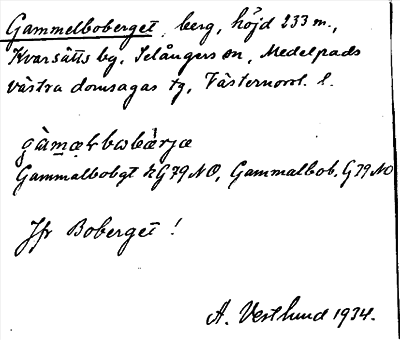 Gammelboberget, berg, höjd 233 m.,
Kvarsätts by, Selångers sn, Medelpads
västra domsagas tg, Västernorrl. l.
gàmæłbωbærjæ
Gammalbobgt KG79NO, Gammalbob. G79NO
Jfr Boberget!
A. Vestlund 1934.